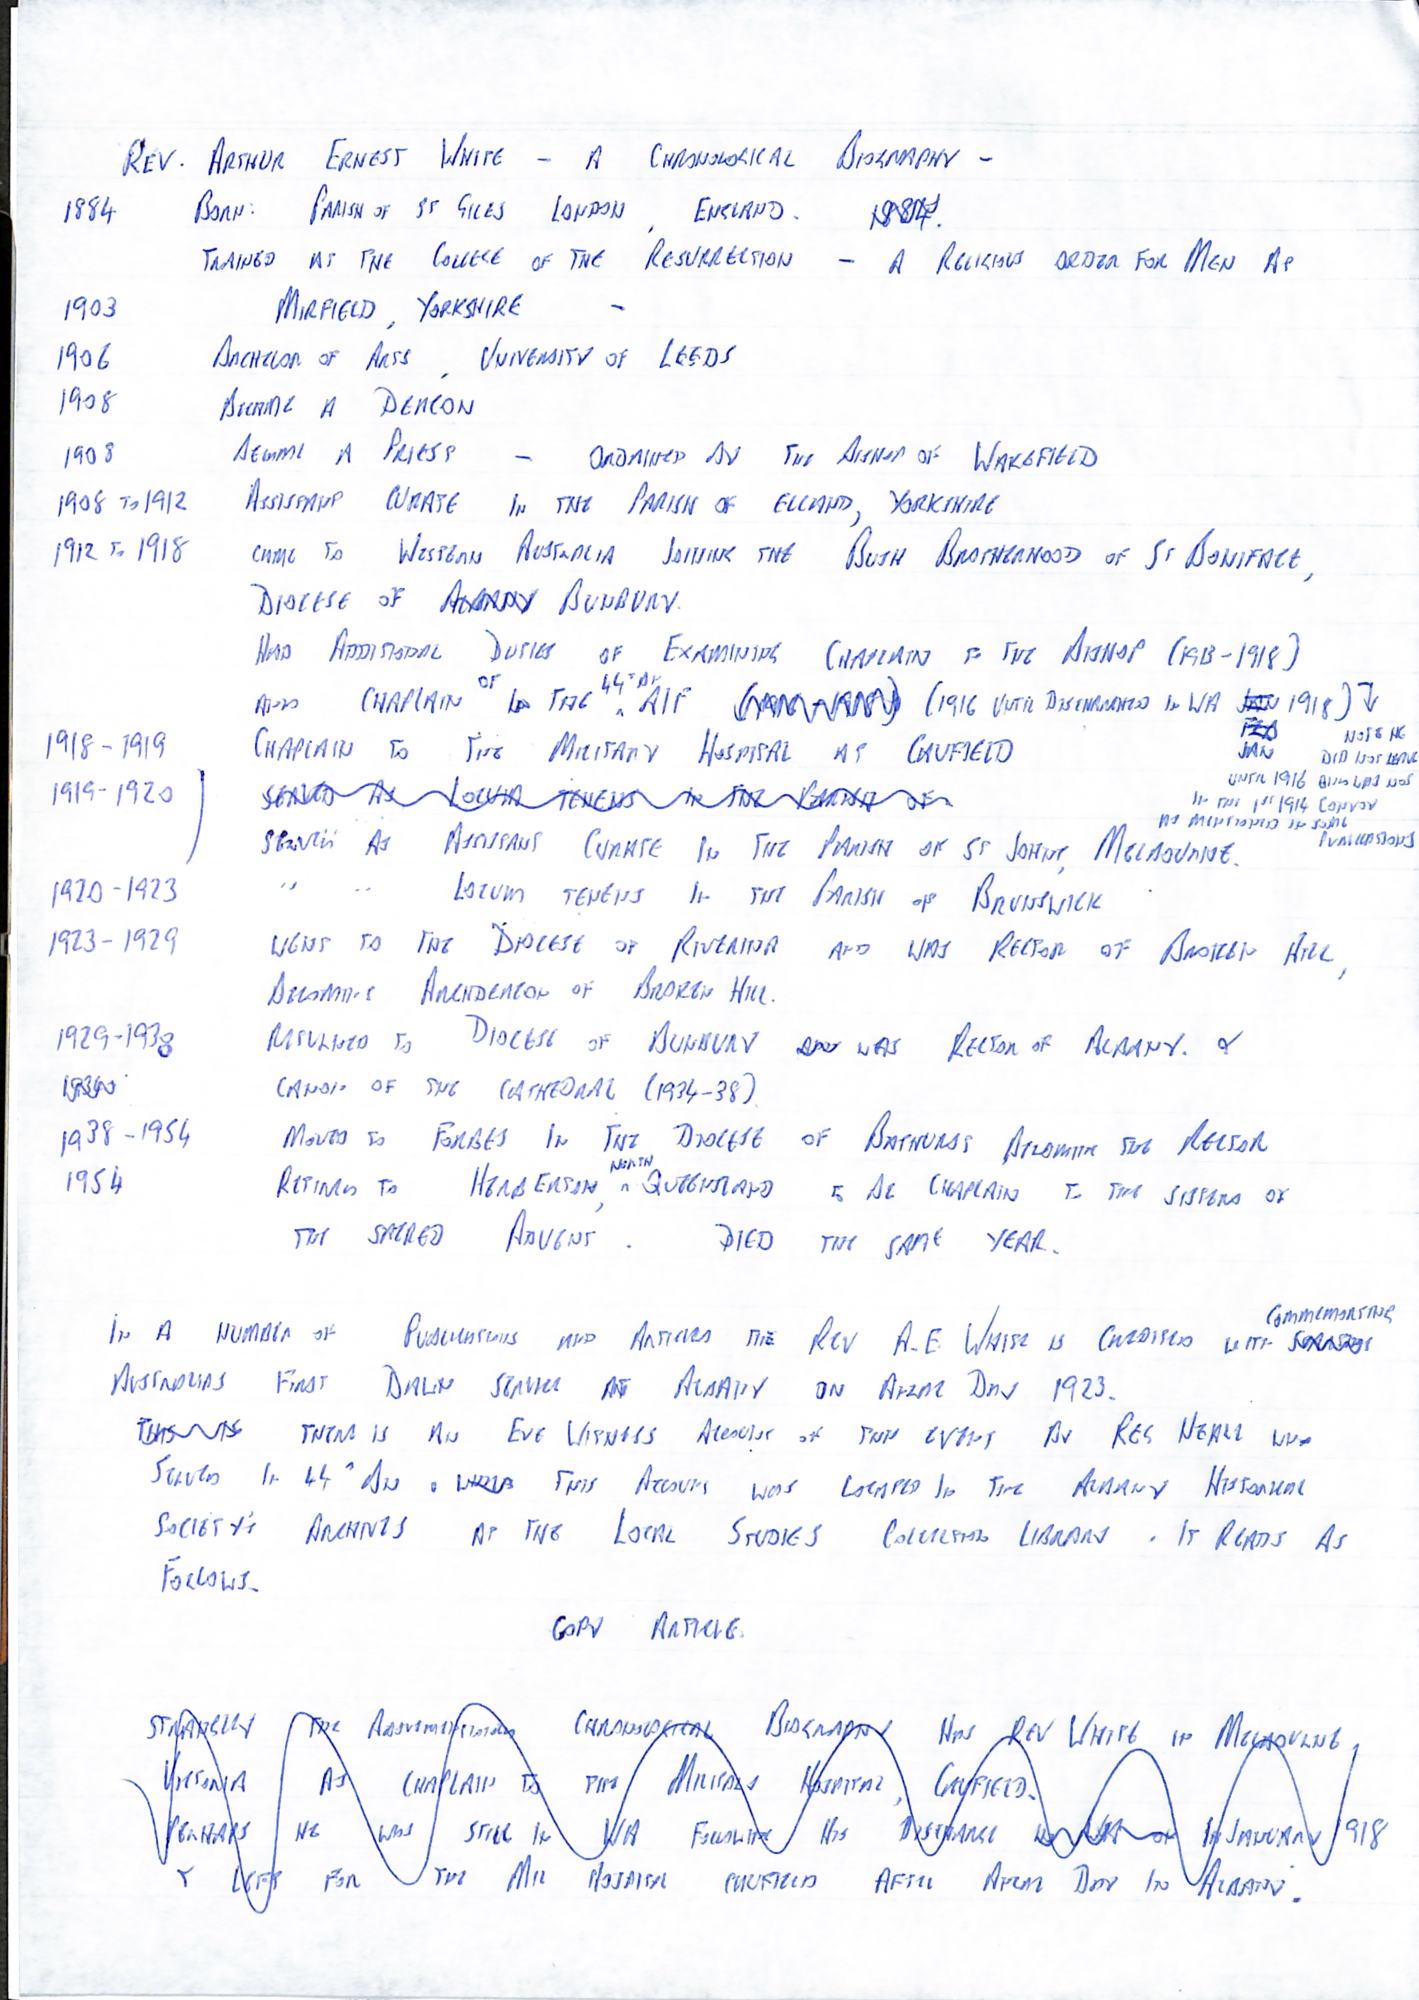 REV. ARTHUR ERNEST WHITE - A CHRONOLOGICAL BIOGRAPHY -
1884 BORN: PARISH OF ST GILES LONDON, ENGLAND. 1884.
TRAINED AT THE COLLEGE OF THE RESURRECTION - A RELIGIOUS ORDER FOR MEN AT
1903 MIRFIELD, YORKSHIRE -
1906 BACHELOR OF ARTS, UNIVERSITY OF LEEDS
1908 BECAME A DEACON
1908 BECAME A PRIEST - ORDAINED BY THE BISHOP OF WAKEFIELD
1908 TO 1912 ASSISTANT CURATE IN THE PARISH OF ELLAND, YORKSHIRE
1912 TO 1918 CAME TO WESTERN AUSTRALIA JOINING THE BUSH BROTHERHOOD OF ST BONIFACE,
DIOCESE OF ALBANY BUNBURY.
HAD ADDITIONAL DUTIES OF EXAMINING CHAPLAIN TO THE BISHOP (1913-1918)
AND CHAPLAIN OF IN THE 44TH BN AIF (1916 UNTIL DISCHARGED IN WA JAN 1918)
FEB
JAN
NOTE HE
DID NOT LEAVE
UNTIL 1916 AND WAS NOT
IN THE 1ST 1914 CONVOY
AS MENTIONED IN SOME
PUBLICATIONS
1918-1919 CHAPLAIN TO THE MILITARY HOSPITAL AT CAUFIELD
1919-1920 SERVED AS LOCUM TENENS IN THE PARISH OF
SERVED AS ASSISTANT CURATE IN THE PARISH OF ST JOHNS, MELBOURNE.
1920-1923 " " LOCUM TENENS IN THE PARISH OF BRUNSWICK
1923-1929 WENT TO THE DIOCESE OF RIVERINA AND WAS RECTOR OF BROKEN HILL,
BECOMING ARCHDEACON OF BROKEN HILL.
1929-1938 RETURNED TO DIOCESE OF BUNBURY AND WAS RECTOR OF ALBANY. &
CANON OF THE CATHEDRAL (1934-38)
1938-1954 MOVED TO FORBES IN THE DIOCESE OF BATHURST BECOMING THE RECTOR
1954 RETIRED TO HERBERTON, NORTH QUEENSLAND TO BE CHAPLAIN TO THE SISTERS OF
THE SACRED ADVENT. DIED THE SAME YEAR.
IN A NUMBER OF PUBLICATIONS AND ARTICLES THE REV A.E WHITE IS CREDITED WITH COMMEMORATING
AUSTRALIAS FIRST DAWN SERVICE AT ALBANY ON ANZAC DAY 1923.
THERE IS AN EYE WITNESS ACCOUNT OF THIS EVENT BY REG NEALE WHO
SERVED IN 44TH BN. WHICH THIS ACCOUNT WAS LOCATED IN THE ALBANY HISTORICAL
SOCIETY'S ARCHIVES AT THE LOCAL STUDIES COLLECTION LIBRARY. IT READS AS
FOLLOWS.
COPY ARTICLE.
STRANGELY THE ABOVEMENTIONED CHRONOLOGICAL BIOGRAPHY HAS REV WHITE IN MELBOURNE,
VICTORIA AS CHAPLAIN TO THE MILITARY HOSPITAL, CAUFIELD.
PERHAPS HE WAS STILL IN WA FOLLOWING HIS DISCHARGE IN JANUARY 1918
& LEFT FOR THE MIL HOSPITAL CAUFIELD AFTER ANZAC DAY IN ALBANY.